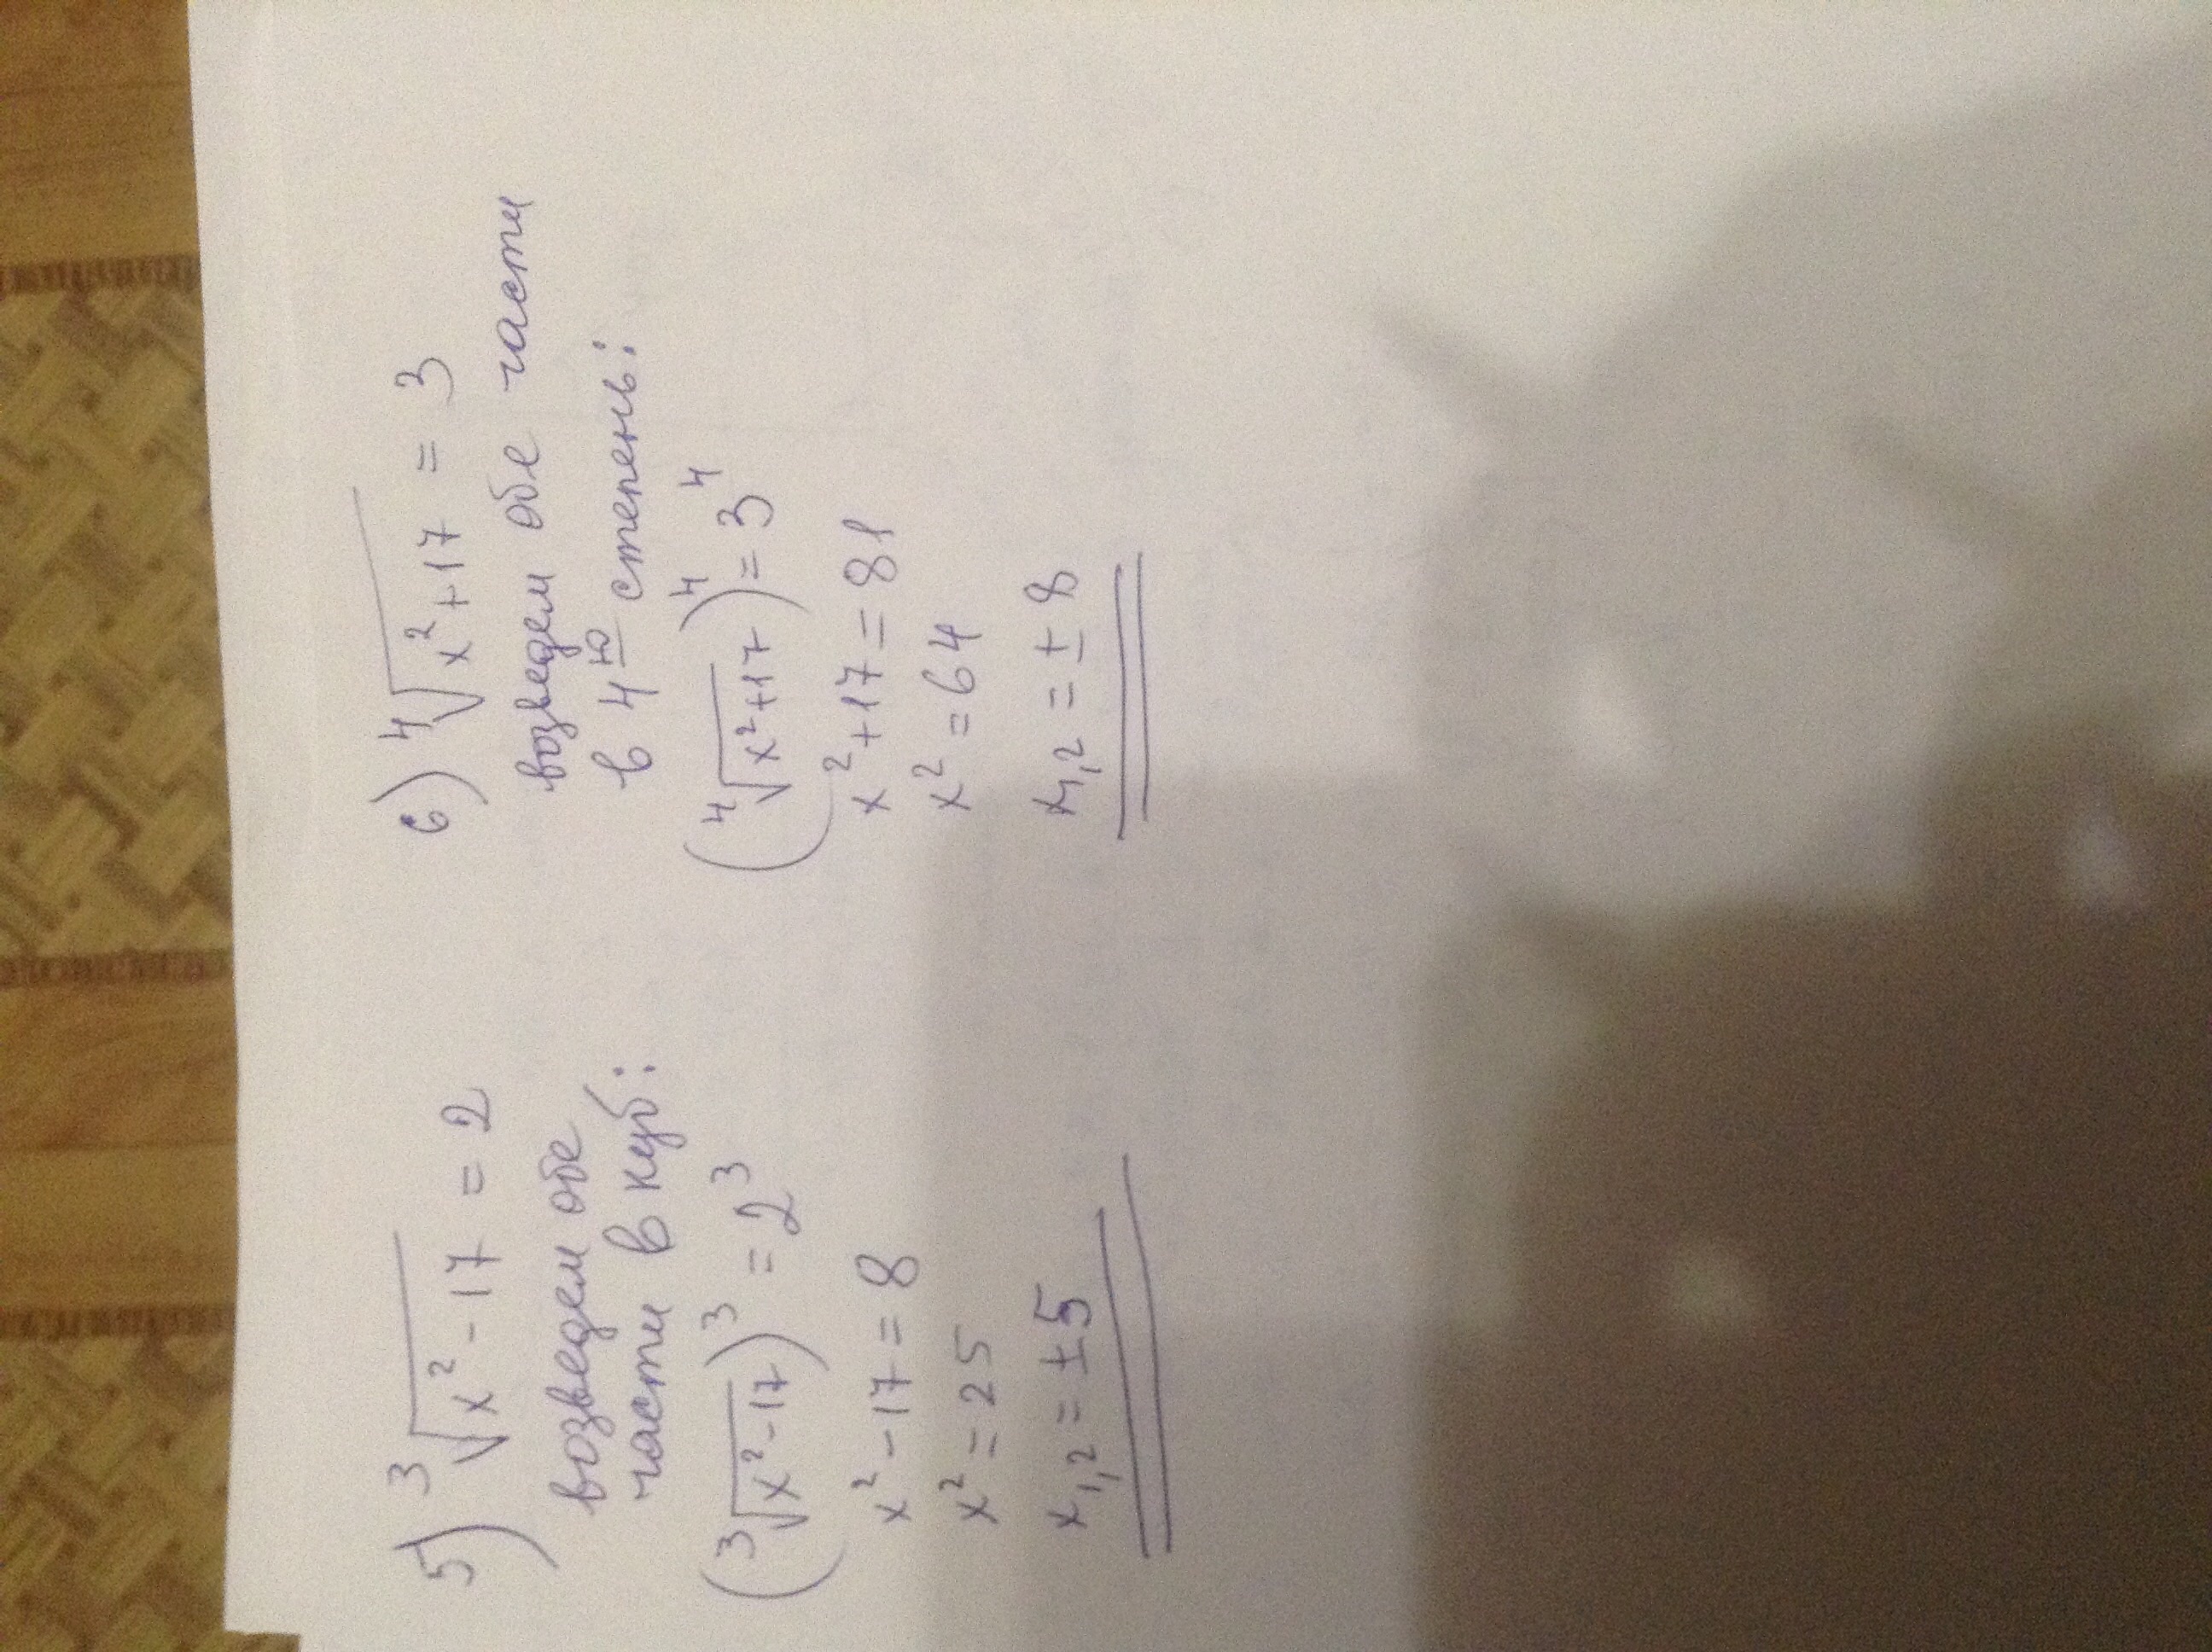 5) ³√(x² - 17) = 2
возведем обе
части в куб:
(³√(x² - 17))³ = 2³
x² - 17 = 8
x² = 25
x₁,₂ = ±5
6) ⁴√(x² + 17) = 3
возведем обе части
в 4ю степень:
(⁴√(x² + 17))⁴ = 3⁴
x² + 17 = 81
x² = 64
x₁,₂ = ± 8